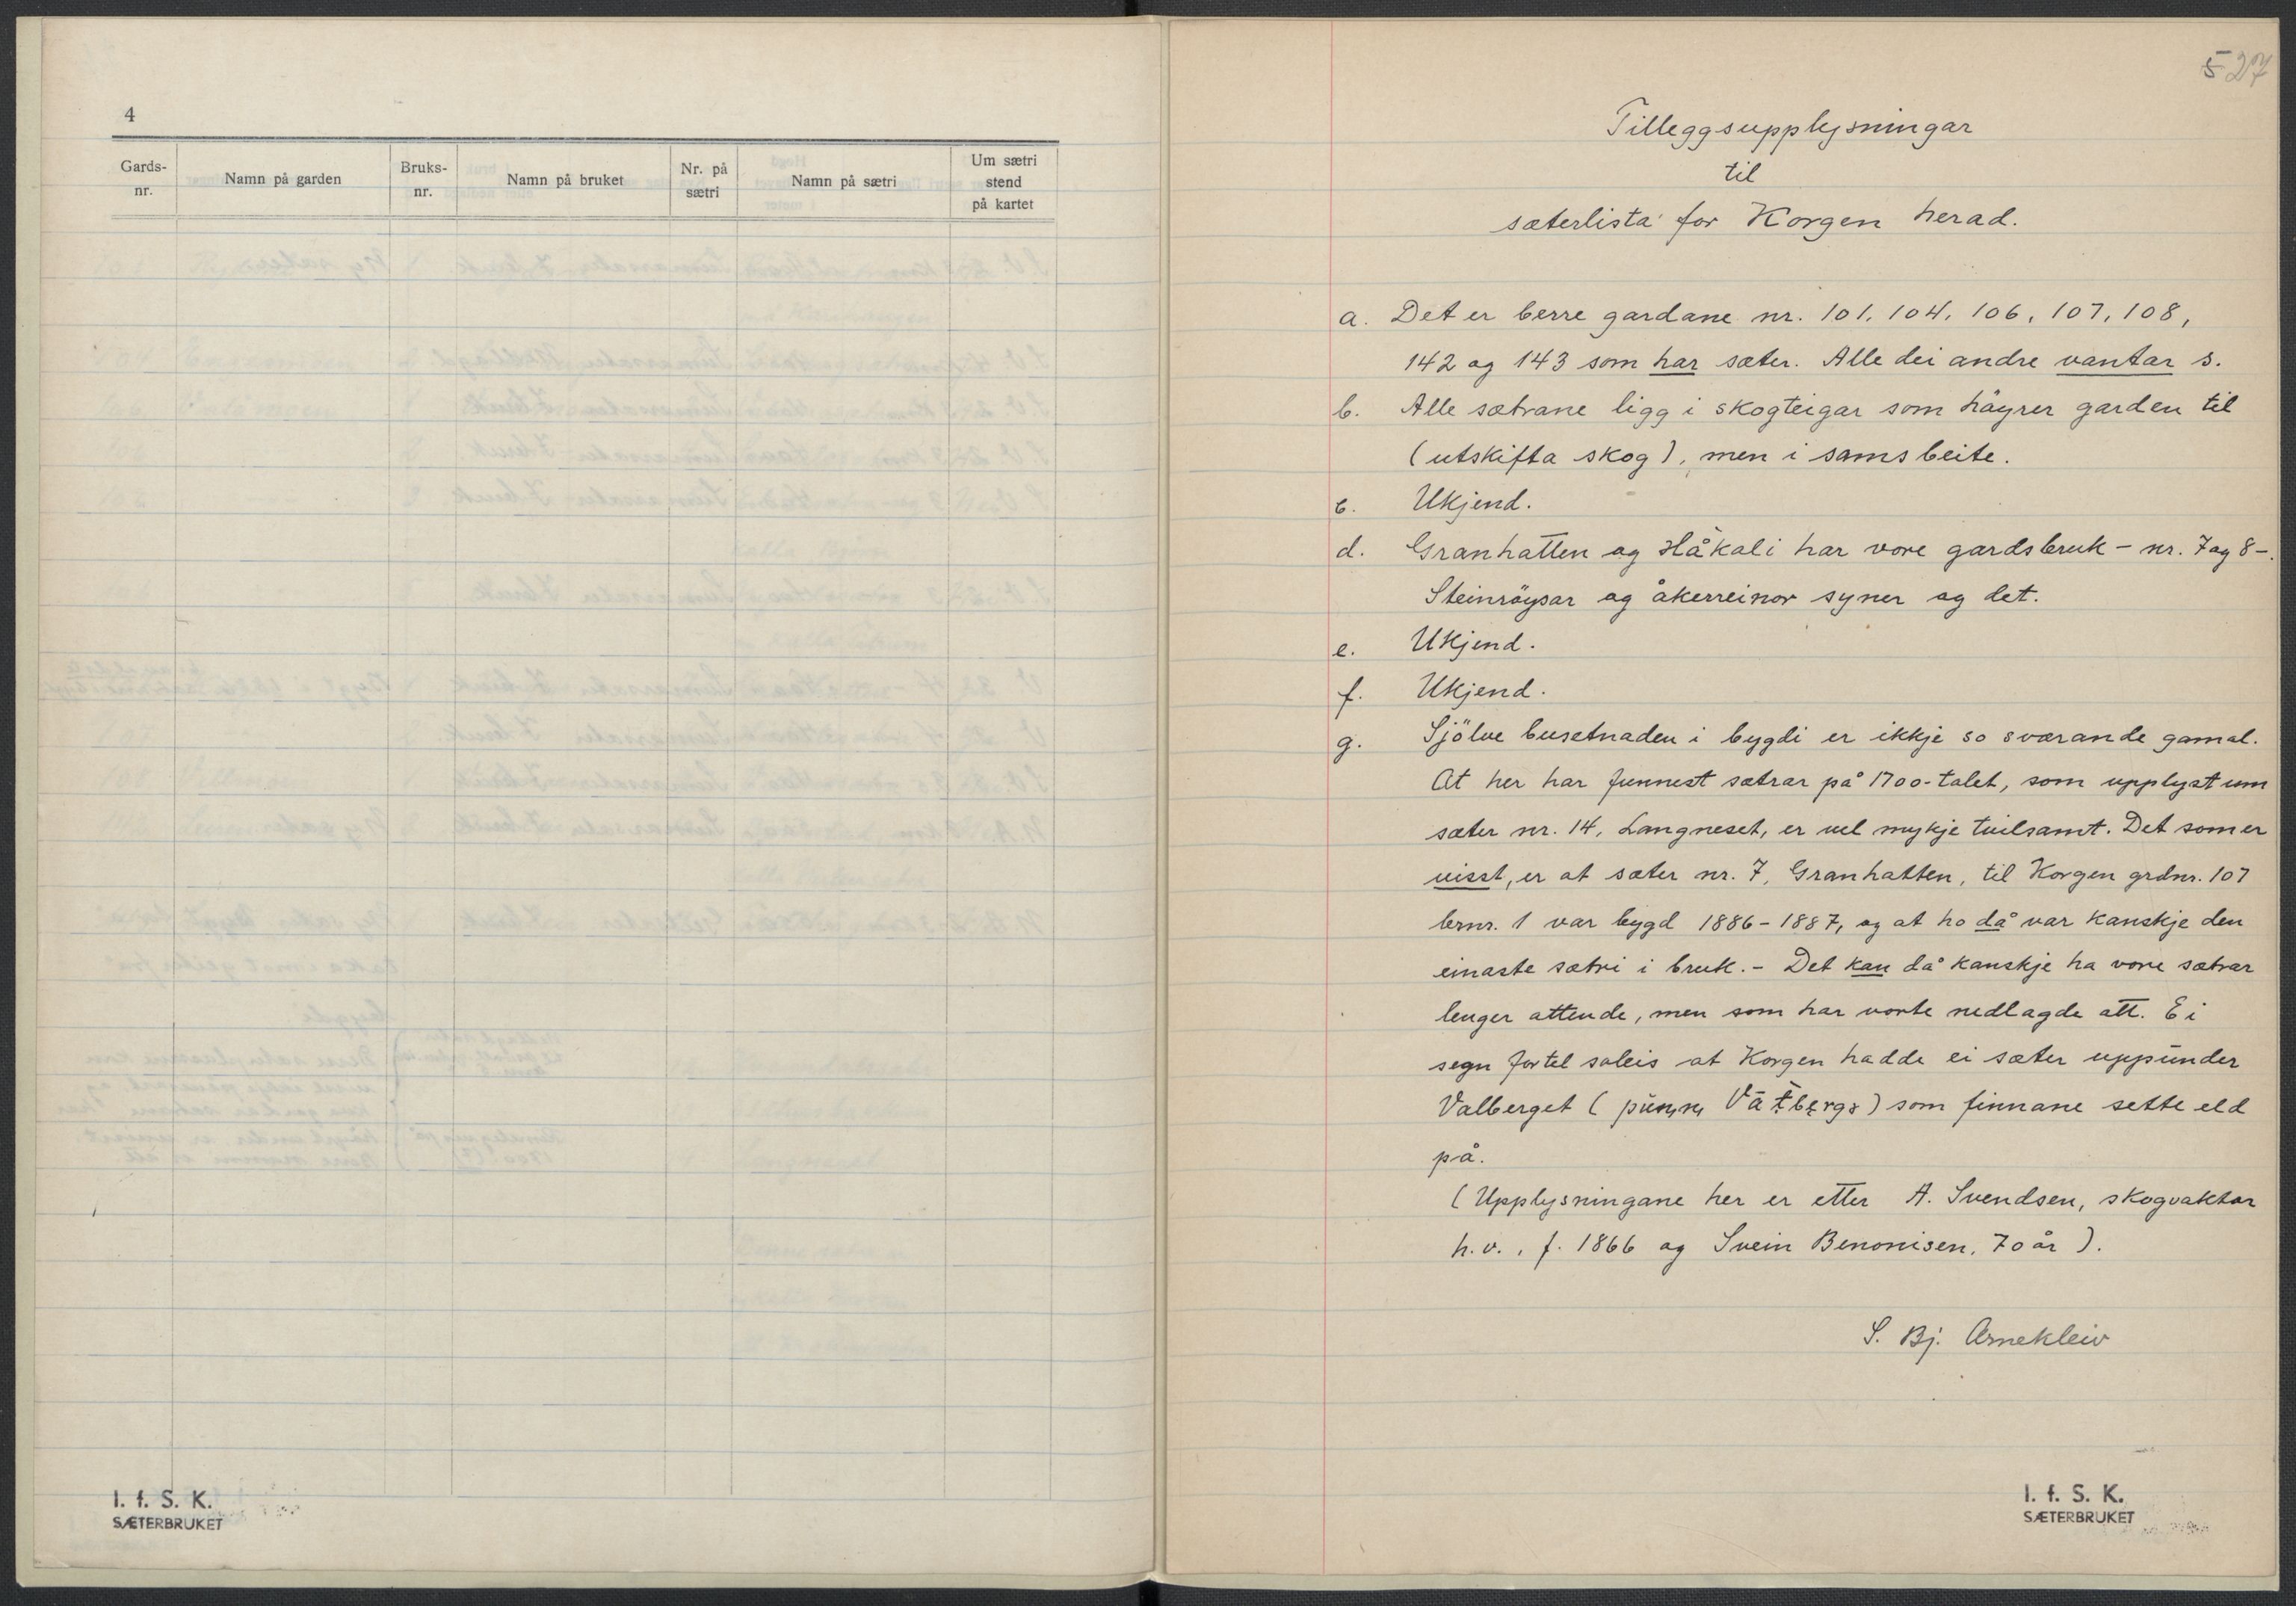 4
Gards-
nr.
Namn på garden
Bruks-
nr.
Namn på bruket
Nr. på
sætri
Namn på sætri
Um sætri
stend
på kartet
I. f. S. K.
SÆTERBRUKET
527
Tilleggsupplysningar
til
sæterlista for Korgen herad.
a. Det er berre gardane nr. 101, 104, 106, 107, 108,
142 og 143 som har sæter. Alle dei andre vantar s.
b. Alle sætrane ligg i skogteigar som höyrer garden til
(utskifta skog), men i sams beite.
c. Ukjend.
d. Granhatten og Håkali har vore gardsbruk - nr. 7 og 8 -.
Steinröysar og åkerreinor syner og det.
e. Ukjend.
f. Ukjend.
g. Sjölve busetnaden i bygdi er ikkje so sværande gamal.
At her har funnest sætrar på 1700-talet, som upplyst um
sæter nr. 14, Langneset, er vel mykje tvilsamt. Det som er
visst, er at sæter nr. 7, Granhatten, til Korgen grdnr. 107
brnr. 1 var bygd 1886-1887, og at ho då var kanskje den
einaste sætri i bruk. - Det kan då kanskje ha vore sætrar
lenger attende, men som har vorte nedlagde att. Ei
segn fortel soleis at Korgen hadde ei sæter uppunder
Valberget ( ) som finnane sette eld
på.
(Upplysningane her er etter A. Svendsen, skogvaktar
h. v., f. 1866 og Svein Benonisen, 70 år ).
S. Bj. Arnekleiv
I. f. S. K.
SÆTERBRUKET